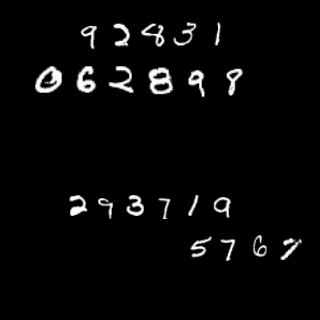 92831
062898
293719
5767